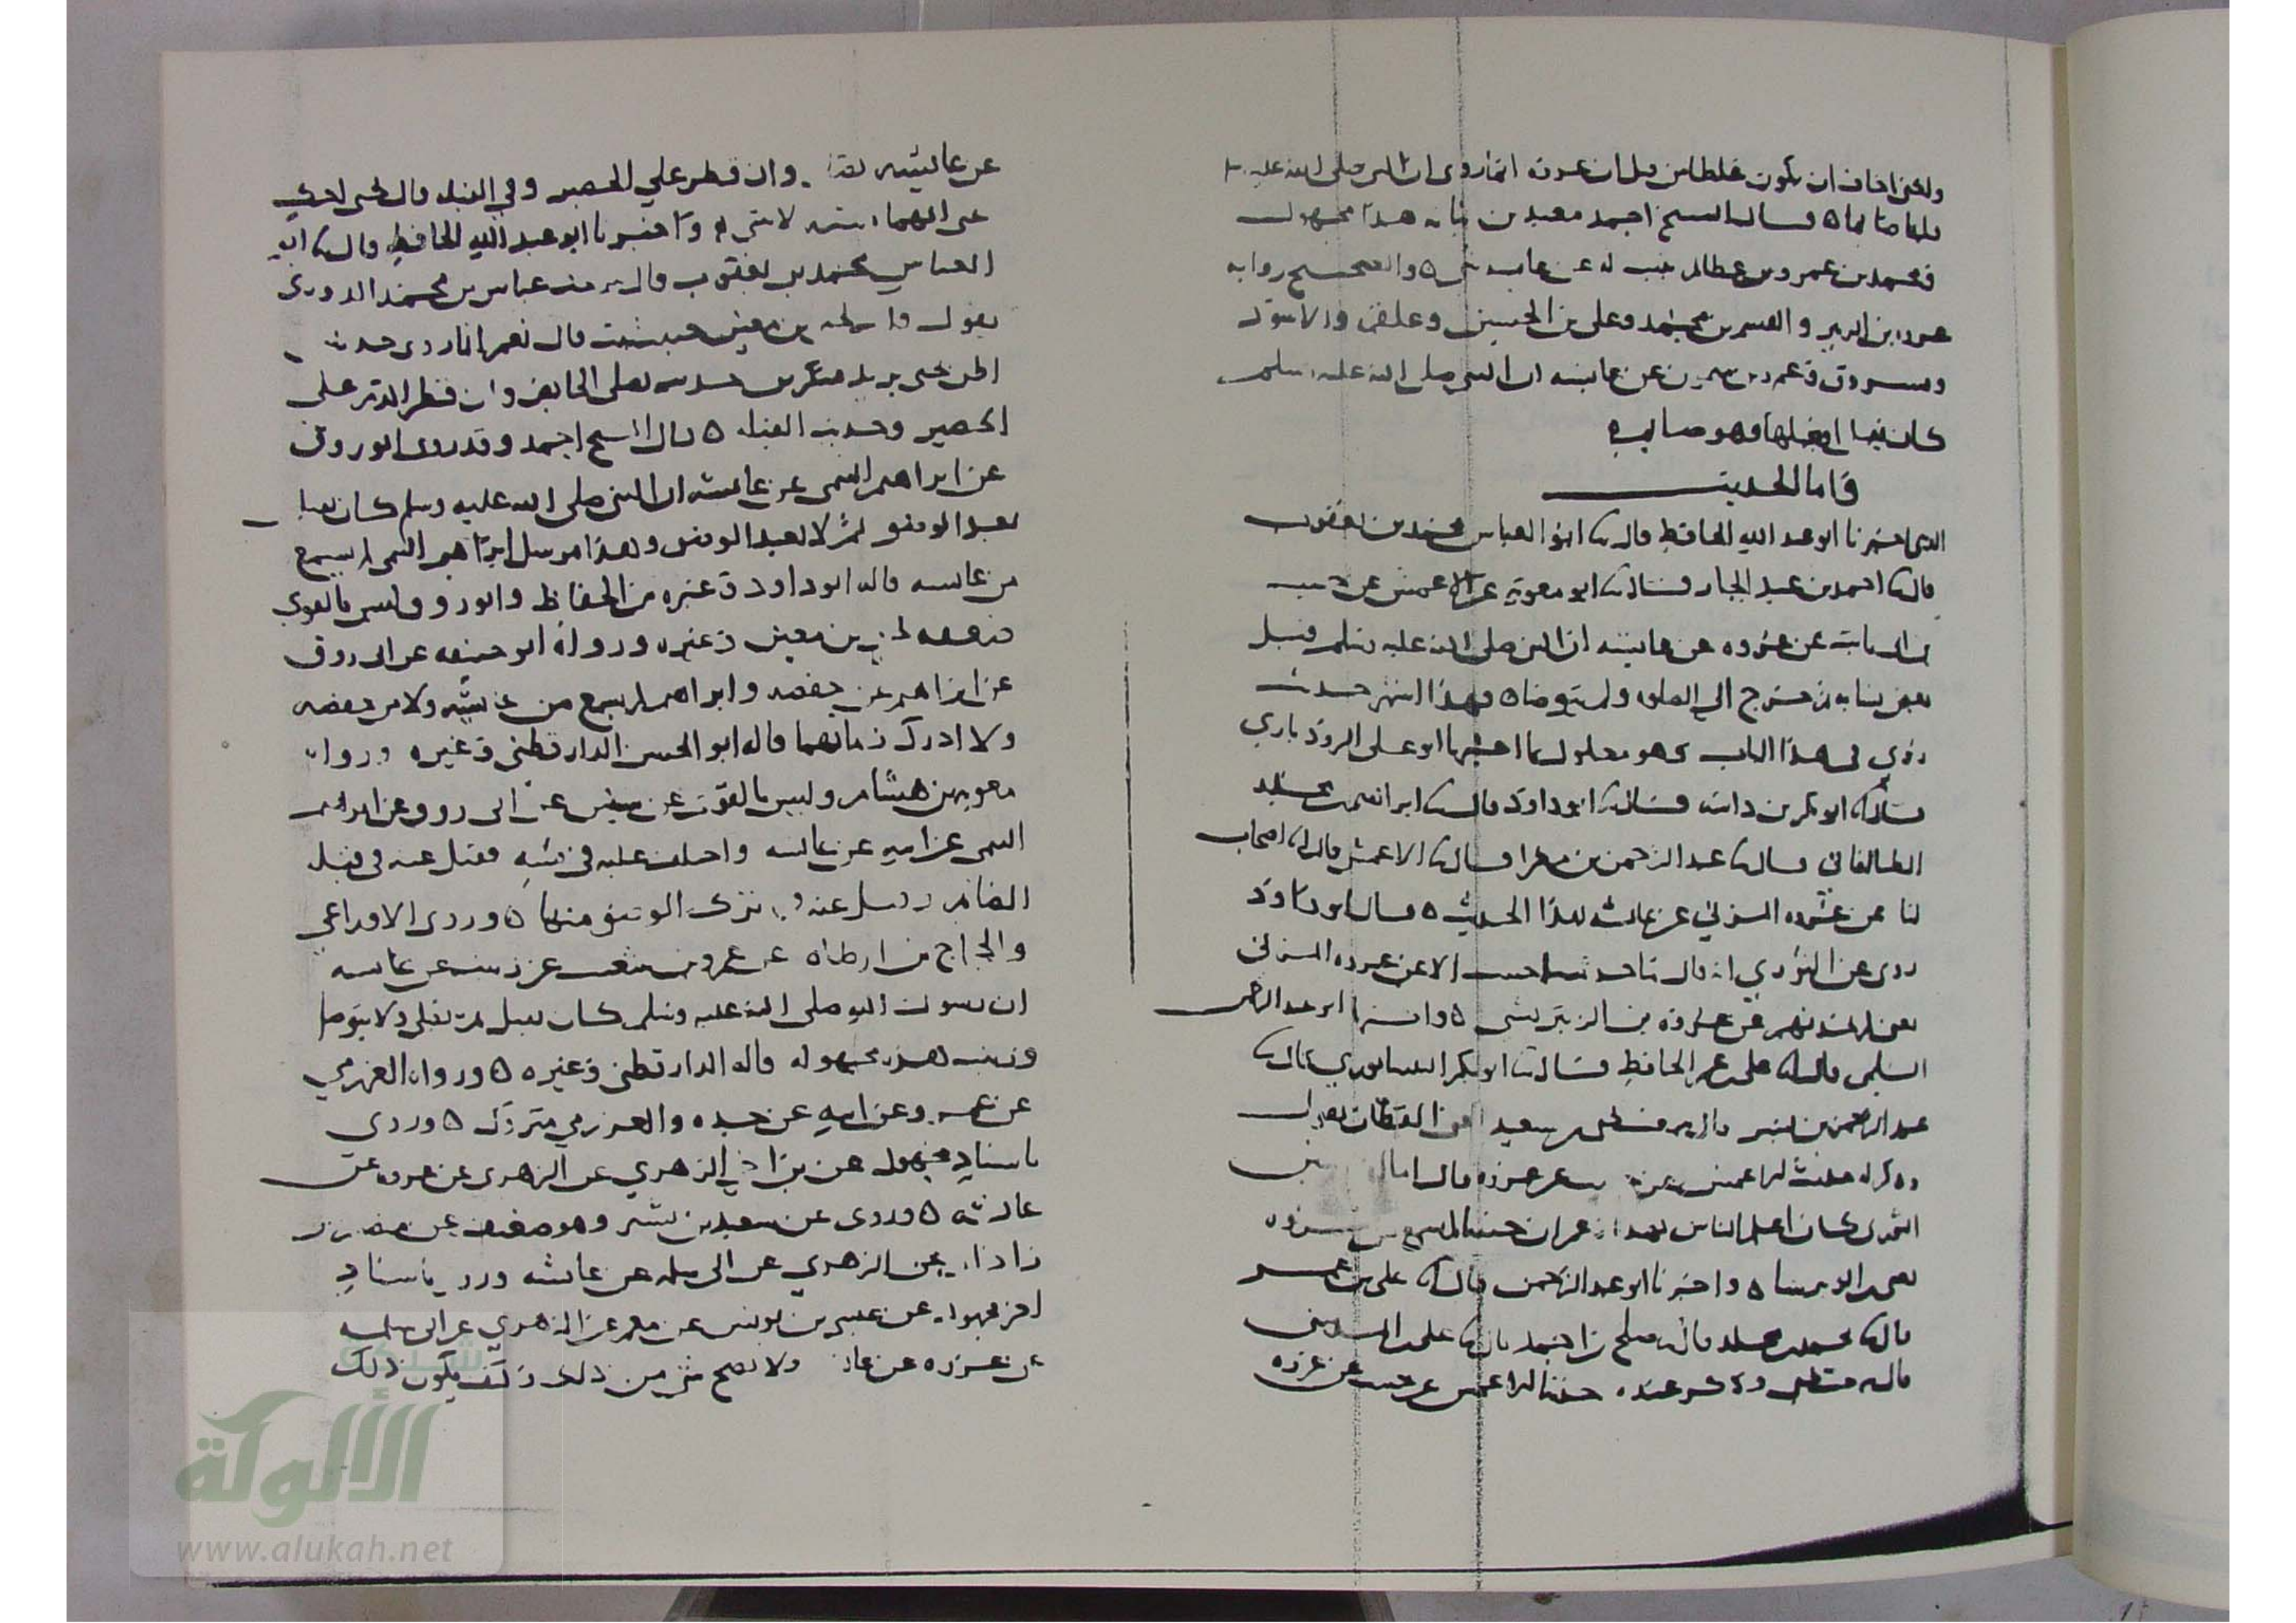 ولكني اخاف ان يكون غلطا من قبل ان عروة انما روى ان النبي صلى الله عليه
قبلها صائما ٥ قال الشيخ احمد معبد بن نباته هذا مجهول
ومحمد بن عمرو بن عطا لم يثبت له عن عايشه شي ٥ والصحيح رواية
عروه بن الزبير والقسم بن محمد وعلي بن الحسين وعلقمة والاسود
ومسروق وعمرو بن ميمون عن عايشه ان النبي صلى الله عليه وسلم
كان يقبل او يقبلها وهو صايم
فاما الحديث
الذي اخبرنا ابو عبد الله الحافظ قال ثنا ابو العباس محمد بن يعقوب
قال ثنا احمد بن عبد الجبار قال ثنا ابو معوية عن الاعمش عن حبيب
بن ابي ثابت عن عروه عن عايشه ان النبي صلى الله عليه وسلم قبل
بعض نسايه ثم خرج الى الصلوه ولم يتوضا ٥ فهذا اشهر حديث
روي في هذا الباب وهو معلول بما اخبرنا ابو علي الروذباري
قال ثنا ابو بكر بن داسة قال ثنا ابو داود قال ثنا ابراهيم بن مخلد
الطالقاني قال ثنا عبد الرحمن بن مغرا قال ثنا الاعمش قال ثنا اصحاب
لنا عن عروه المزني عن عايشه بهذا الحديث ٥ قال ابو داود
روى عن الثوري انه قال ما حدثنا حبيب الا عن عروه المزني
يعني لم يحدثهم عن عروة بن الزبير بشي ٥ واخبرنا ابو عبد الرحمن
السلمي قال ثنا علي بن عمر الحافظ قال ثنا ابو بكر النيسابوري قال ثنا
عبد الرحمن بن بشر قال سمعت يحيى بن سعيد القطان يقول
وذكر له حديث الاعمش عن حبيب عن عروه قال اما ان سفين
الثوري كان اعلم الناس بهذا زعم ان حبيبا لم يسمع من عروه
يعني ابن الزبير شيا ٥ واخبرنا ابو عبد الرحمن قال ثنا علي بن عمر
قال ثنا محمد بن مخلد قال ثنا صلح بن احمد قال ثنا علي بن المديني
قال سمعت يحيى وذكر عنده حديثا الاعمش عن حبيب عن عروه
عن عايشه تصلي وان قطر علي الحصير وفي القبله قال يحيى احك
عني انهما شبه لا شي ٥ واخبرنا ابو عبد الله الحافظ قال ثنا ابو
العباس محمد بن يعقوب قال سمعت عباس بن محمد الدوري
يقول قلت ليحيى بن معين حبيب ثبت قال نعم انما روى حديثين
اظن يحيى يريد منكرين حديث تصلي الحايض وان قطر الدم على
الحصير وحديث القبله ٥ قال الشيخ احمد وقد روى ابو روق
عن ابراهيم التيمي عن عايشه ان النبي صلى الله عليه وسلم كان يقبل
بعد الوضو ثم لا يعيد الوضو وهذا مرسل ابراهيم التيمي لم يسمع
من عايشه قاله ابو داود وغيره من الحفاظ وابو روق ليس بالقوي
ضعفه يحيى بن معين وغيره ورواه ابو حنيفه عن ابي روق
عن ابراهيم عن حفصه وابراهيم لم يسمع من عايشه ولا من حفصه
ولا ادرك زمانهما قاله ابو الحسن الدارقطني وغيره ورواه
معويه بن هشام وليس بالقوي عن سفين عن ابي روق عن ابراهيم
التيمي عن ابيه عن عايشه واختلف عليه في متنه فقيل عنه في قبلة
الصايم وقيل عنه في ترك الوضو منها ٥ وروى الاوزاعي
والحجاج بن ارطاه عن عمرو بن شعيب عن زينب عن عايشه
ان رسول الله صلى الله عليه وسلم كان يقبل ثم يصلي ولا يتوضا
وزينب هذه مجهولة قاله الدارقطني وغيره ٥ ورواه العرزمي
عن عمرو عن ابيه عن جده والعرزمي متروك ٥ وروى
باسناد مجهول عن بن اخي الزهري عن الزهري عن عروه عن
عايشه ٥ وروى عن سعيد بن بشير وهو ضعيف عن منصور بن
زاذان عن الزهري عن ابي سلمه عن عايشه وروي باسناد
اخر مجهول عن عيسى بن يونس عن معمر عن الزهري عن ابي سلمه
عن عروه عن عايشه ولا يصح شي من ذلك وكيف يكون ذلك
شبكة
الألوكة
www.alukah.net